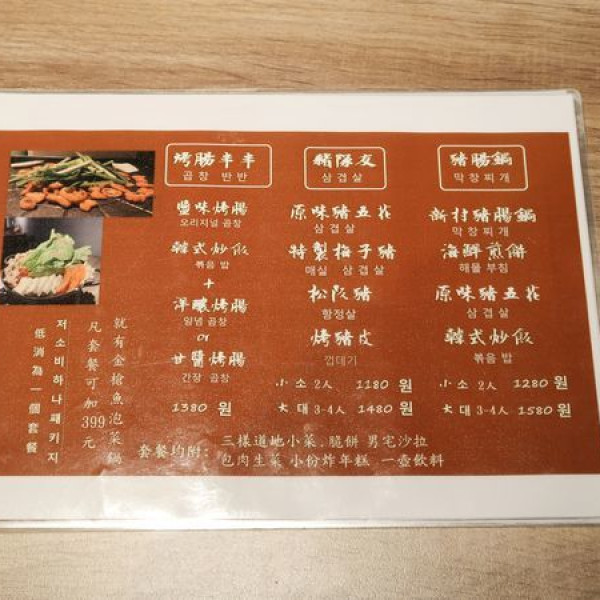 烤腸半半
곱창 반반
鹽味烤腸
오리지널 곱창
韓式炒飯
볶음 밥
+
洋釀烤腸
양념 곱창
or
甘醬烤腸
간장 곱창
1380 원
豬隊友
삼겹살
原味豬五花
삼겹살
特製梅子豬
매실 삼겹살
松阪豬
항정살
烤豬皮
껍데기
小 소 2人 1180 원
大 대 3-4人 1480 원
豬腸鍋
막창찌개
新村豬腸鍋
막창찌개
海鮮煎餅
해물 부침
原味豬五花
삼겹살
韓式炒飯
볶음 밥
小 소 2人 1280 원
大 대 3-4人 1580 원
就有金槍魚泡菜鍋
凡套餐可加399元
저소비하나패키지
低消為一個套餐
套餐均附:
三樣道地小菜.脆餅 男宅沙拉
包肉生菜 小份炸年糕 一壺飲料